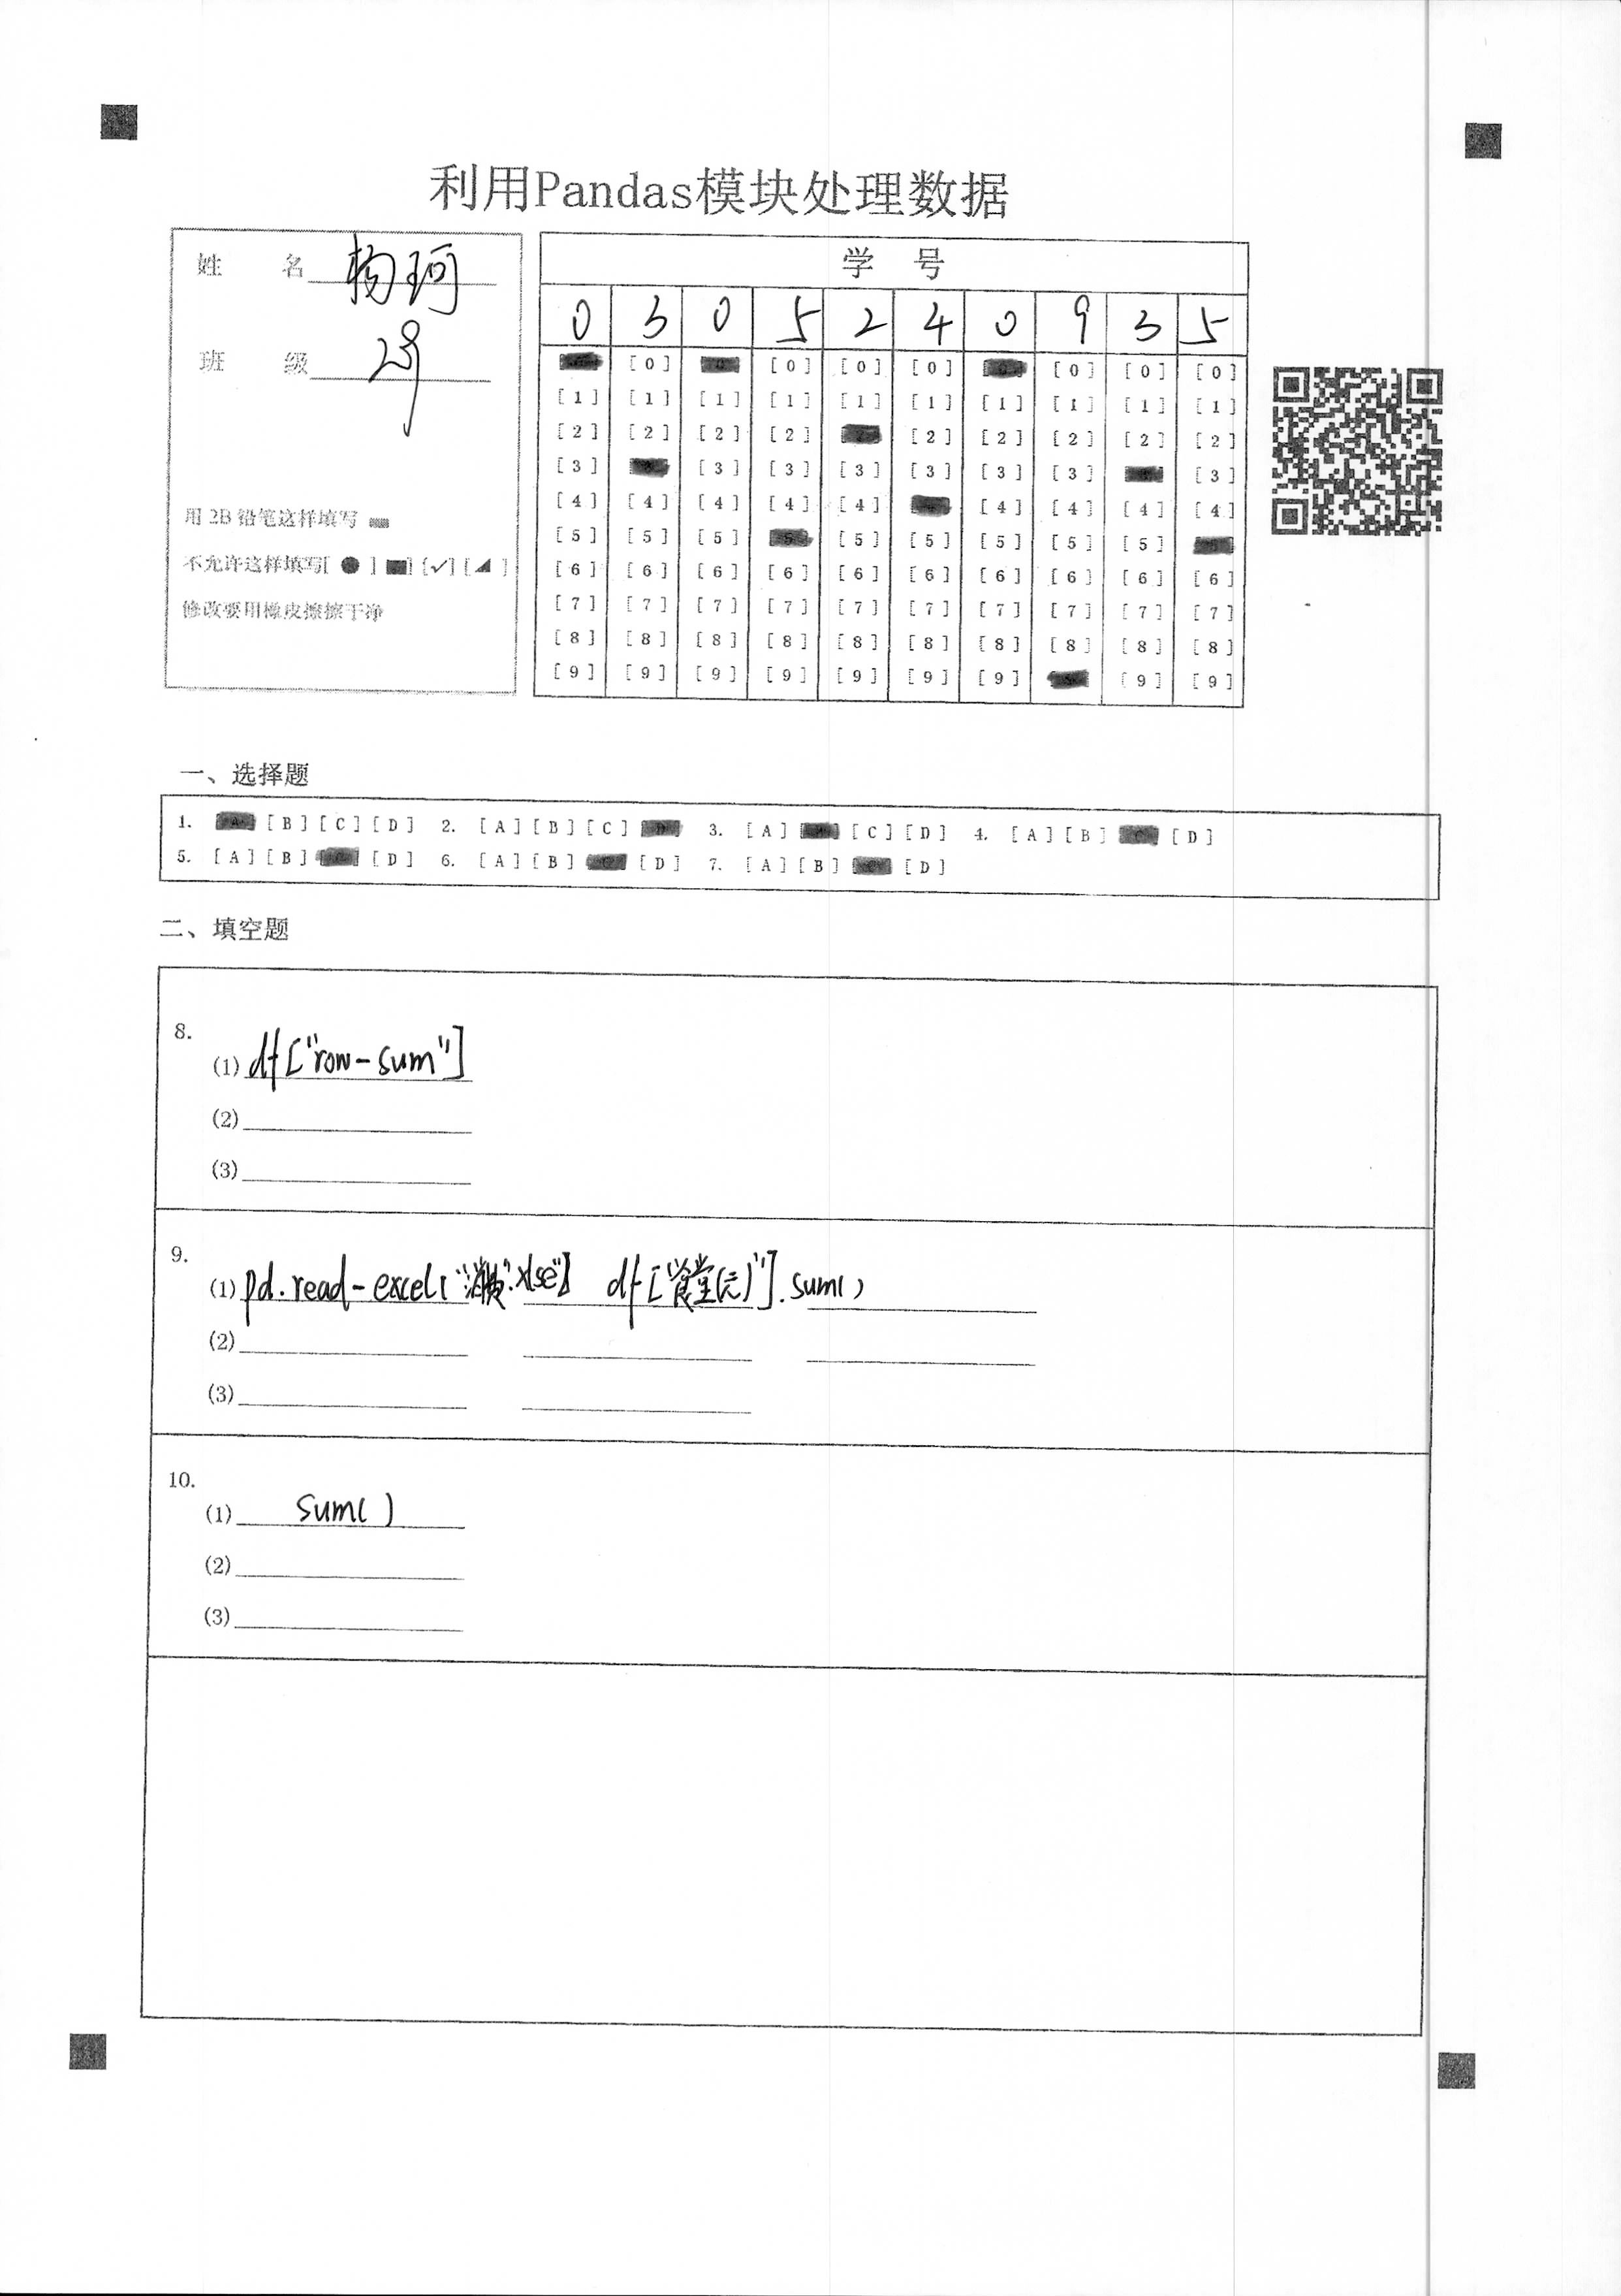 利用Pandas模块处理数据
姓 名 杨珂
班 级
用 2B 铅笔这样填写
不允许这样填写[ ● ] [■] [✓] [◢ ]
修改要用橡皮擦擦干净
学 号
0 3 0 5 2 4 0 9 3 5
[0] [0] [0] [0] [0] [0] [0]
[1] [1] [1] [1] [1] [1] [1] [1] [1] [1]
[2] [2] [2] [2] [2] [2] [2] [2] [2]
[3] [3] [3] [3] [3] [3] [3] [3]
[4] [4] [4] [4] [4] [4] [4] [4] [4]
[5] [5] [5] [5] [5] [5] [5] [5]
[6] [6] [6] [6] [6] [6] [6] [6] [6] [6]
[7] [7] [7] [7] [7] [7] [7] [7] [7] [7]
[8] [8] [8] [8] [8] [8] [8] [8] [8] [8]
[9] [9] [9] [9] [9] [9] [9] [9] [9]
一、选择题
1. [B] [C] [D] 2. [A] [B] [C] 3. [A] [C] [D] 4. [A] [B] [D]
5. [A] [B] [D] 6. [A] [B] [D] 7. [A] [B] [D]
二、填空题
8.
(1) df["row-sum"]
(2)
(3)
9.
(1) pd.read-excel( df["食堂(元)"].sum()
(2)
(3)
10.
(1) sum( )
(2)
(3)